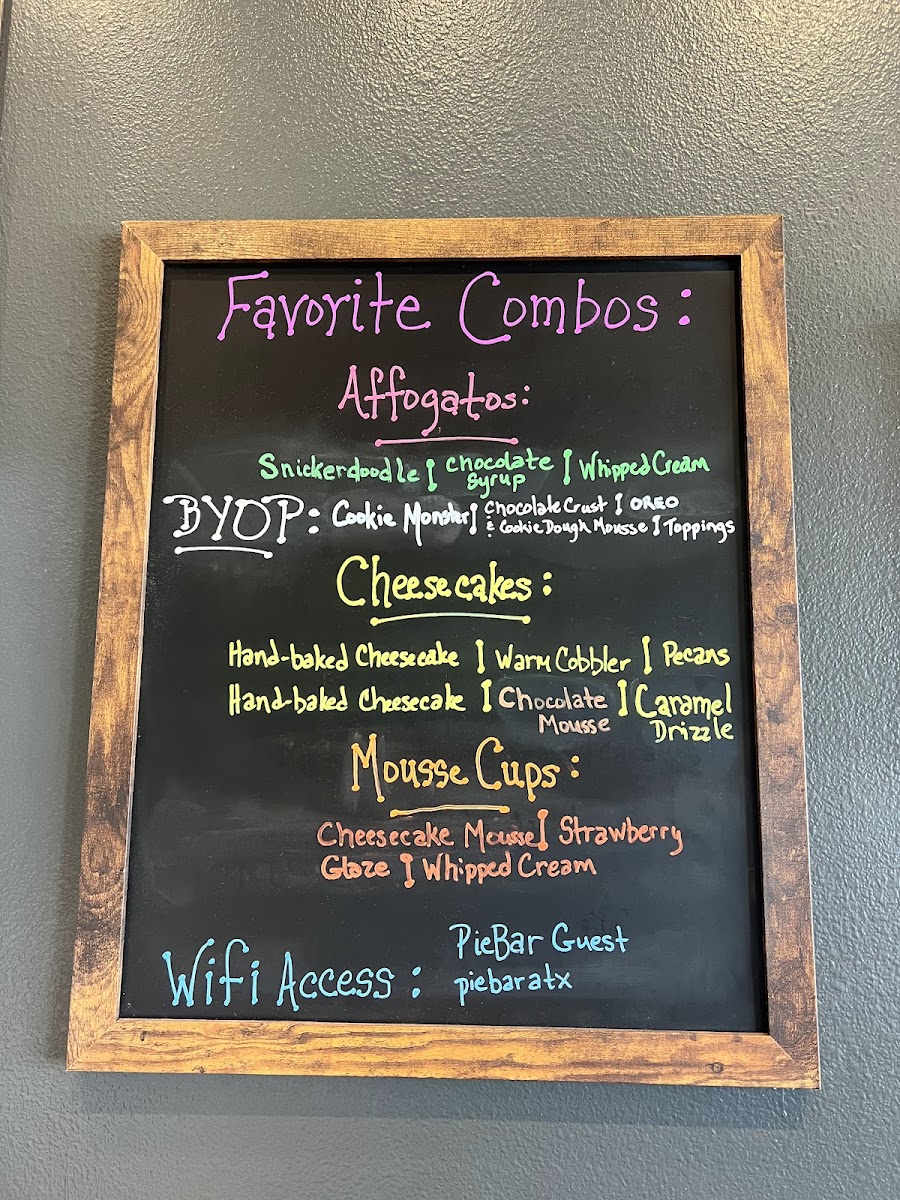 Favorite Combos:
Affogatos:
Snickerdoodle | Chocolate Syrup | Whipped Cream
BYOP: Cookie Monster | Chocolate Crust & Cookie Dough Mousse | OREO | Toppings
Cheesecakes:
Hand-baked Cheesecake | Warm Cobbler | Pecans
Hand-baked Cheesecake | Chocolate Mousse | Caramel Drizzle
Mousse Cups:
Cheesecake Mousse | Strawberry
Glaze | Whipped Cream
Wifi Access: PieBar Guest
piebaratx